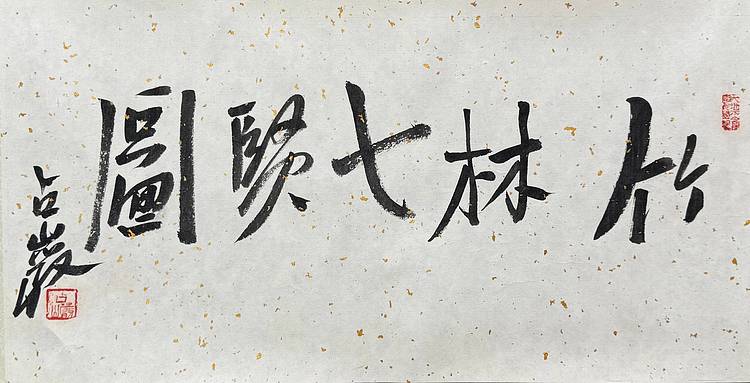 竹林七賢圖
占巖